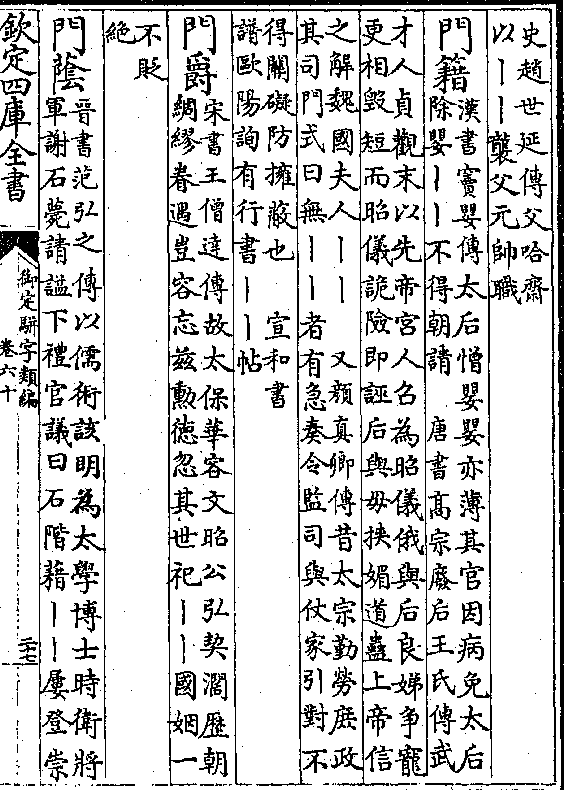 史趙世延傳父哈齋
以丨丨襲父元帥職
門籍
漢書竇嬰傳太后憎嬰嬰亦薄其官因病免太后
除嬰丨丨不得朝請 唐書高宗廢后王氏傳武
才人貞觀末以先帝宮人召為昭儀俄與后良娣争寵
更相毁短而昭儀詭險即誣后與毋挟媚道蠱上帝信
之解魏國夫人丨丨 又顔真卿傳昔太宗勤勞庶政
其司門式曰無丨丨者有急奏令監司與仗家引對不
得關礙防擁蔽也 宣和書
譜歐陽詢有行書丨丨帖
門爵
宋書王僧達傳故太保華容文昭公弘契濶歴朝
綢繆眷遇豈容忘兹勲徳忽其世祀丨丨國姻一
不貶
絶
門蔭
晉書范弘之傳以儒術該明為太學博士時衛將
軍謝石薨請謚下禮官議曰石階藉丨丨屢登崇
欽定四庫全書
御定駢字類編
卷六十
二十七